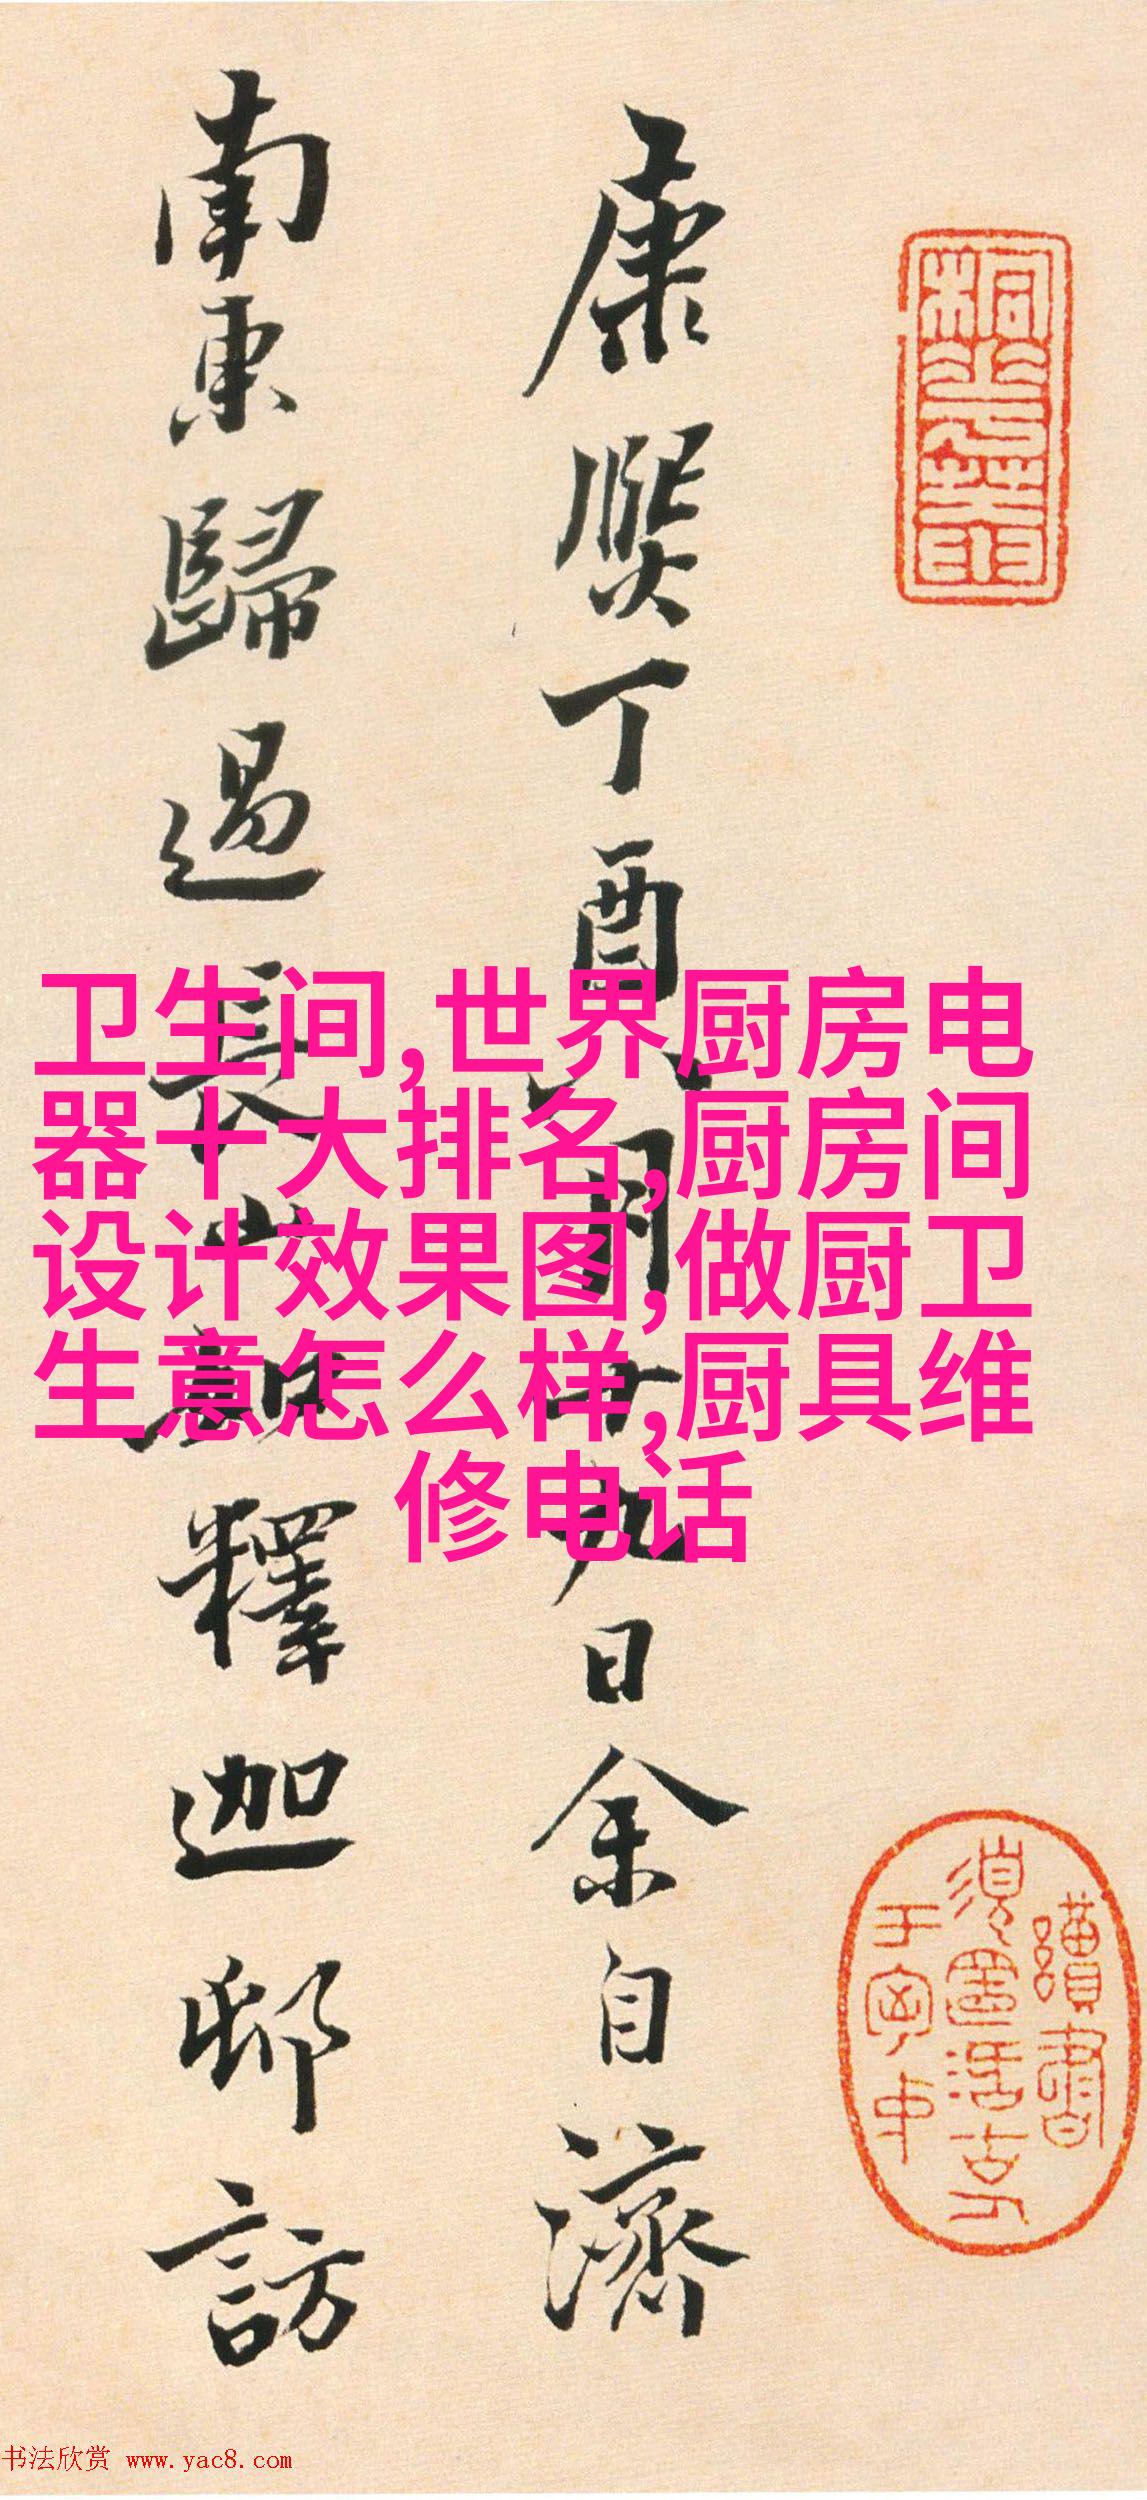 康熙丁酉八月廿九日余自濟
南東歸過長山如釋迦邨訪
卫生间,世界厨房电
器十大排名,厨房间
设计效果图,做厨卫
生意怎么样,厨具维
修电话
书法欣赏 www.yac8.com